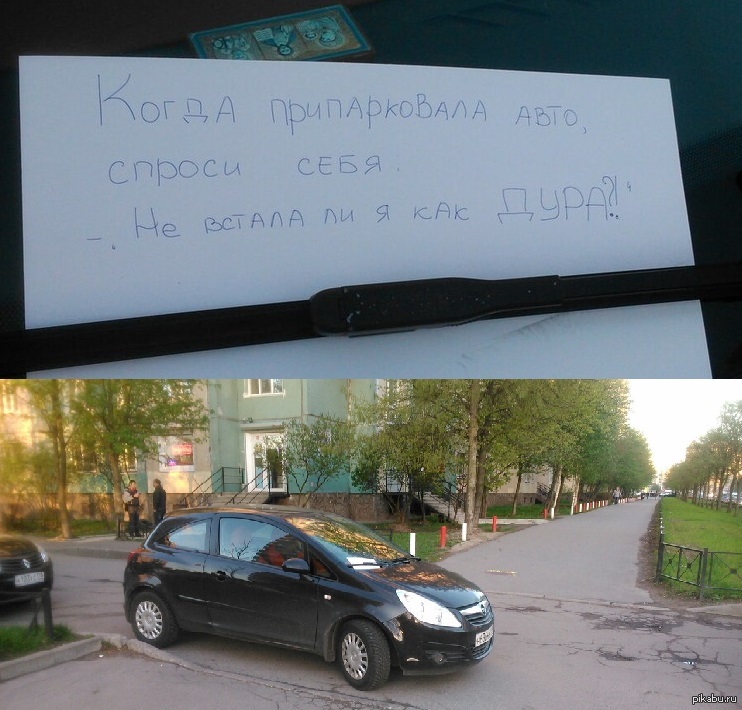 Когда припарковала авто,
спроси себя.
–, Не встала ли я как ДУРА?!"
pikabu.ru